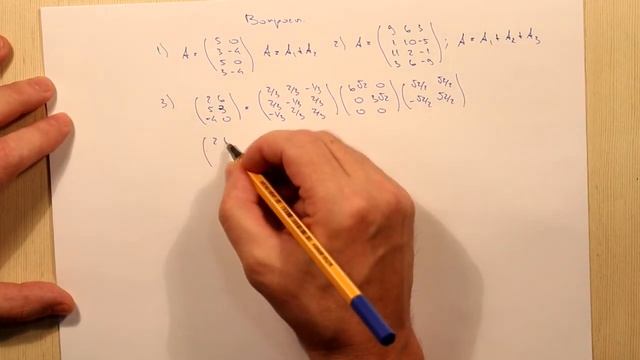 Вопросы.
1) A = ( 5 0 ; 3 -4 ; 5 0 ; 3 -4 ) A = A₁ + A₂ 2) A = ( 9 6 3 ; 1 10 -5 ; 11 2 -1 ; 3 6 -9 ) ; A = A₁ + A₂ + A₃
3) ( 2 6 ; 5 3 ; -4 0 ) = ( 2/3 2/3 -1/3 ; 2/3 -1/3 2/3 ; -1/3 2/3 2/3 ) ( 6√2 0 ; 0 3√2 ; 0 0 ) ( √2/2 √2/2 ; -√2/2 √2/2 )
( 2